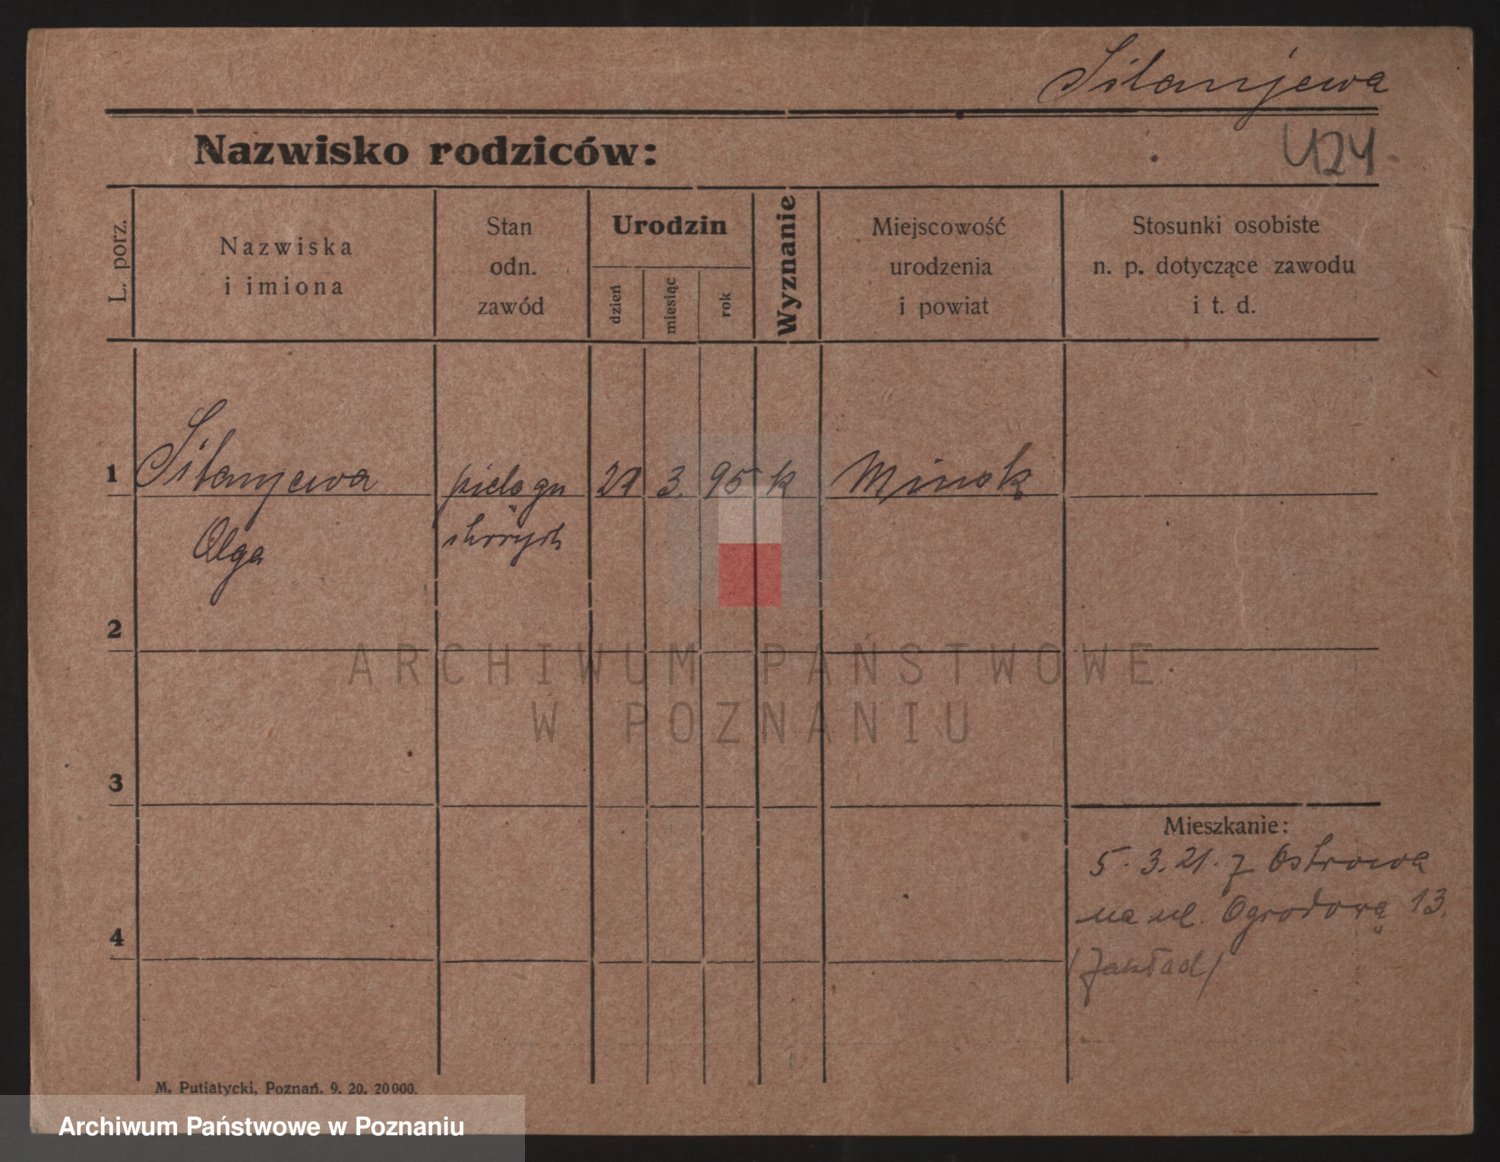 Silanjewa
Nazwisko rodziców:
424
L. porz.
Nazwiska
i imiona
Stan
odn.
zawód
Urodzin
dzień
miesiąc
rok
Wyznanie
Miejscowość
urodzenia
i powiat
Stosunki osobiste
n. p. dotyczące zawodu
i t. d.
1 Silanjewa pielęgn 3. 95 k Minsk
Olga chorych
2
ARCHIWUM PAŃSTWOWE
W POZNANIU
3
Mieszkanie:
5. 3. 21. z Ostrowa
na ul. Ogrodową 13.
4
/Zakład/
M. Putiatycki, Poznań. 9. 20. 20000.
Archiwum Państwowe w Poznaniu